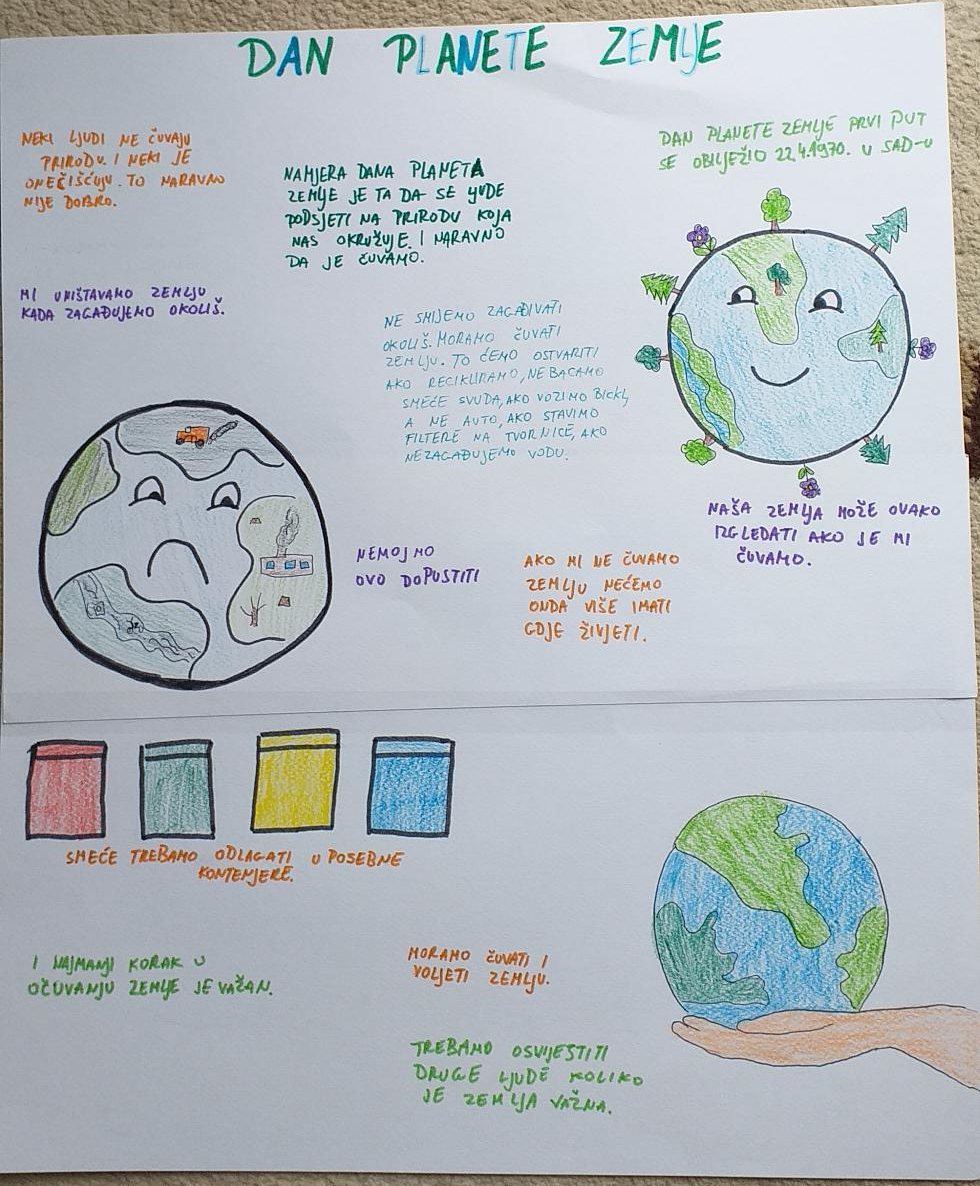 DAN PLANETE ZEMLJE
NEKI LJUDI NE ČUVAJU
PRIRODU. I NEKI JE
ONEČIŠĆUJU. TO NARAVNO
NIJE DOBRO.
NAMJERA DANA PLANETA
ZEMLJE JE TA DA SE LJUDE
PODSJETI NA PRIRODU KOJA
NAS OKRUŽUJE. I NARAVNO
DA JE ČUVAMO.
DAN PLANETE ZEMLJE PRVI PUT
SE OBILJEŽIO 22.4.1970. U SAD-U
MI UNIŠTAVAMO ZEMLJU
KADA ZAGAĐUJEMO OKOLIŠ.
NE SMIJEMO ZAGAĐIVATI
OKOLIŠ. MORAMO ČUVATI
ZEMLJU. TO ĆEMO OSTVARITI
AKO RECIKLIRAMO, NE BACAMO
SMEĆE SVUDA, AKO VOZIMO BICIKL,
A NE AUTO, AKO STAVIMO
FILTERE NA TVORNICE, AKO
NEZAGAĐUJEMO VODU.
NAŠA ZEMLJA MOŽE OVAKO
IZGLEDATI AKO JE MI
ČUVAMO.
NEMOJMO
OVO DOPUSTITI
AKO MI NE ČUVAMO
ZEMLJU NEĆEMO
ONDA VIŠE IMATI
GDJE ŽIVJETI.
SMEĆE TREBAMO ODLAGATI U POSEBNE
KONTENJERE.
I NAJMANJI KORAK U
OČUVANJU ZEMLJE JE VAŽAN.
MORAMO ČUVATI I
VOLJETI ZEMLJU.
TREBAMO OSVIJESTITI
DRUGE LJUDE KOLIKO
JE ZEMLJA VAŽNA.